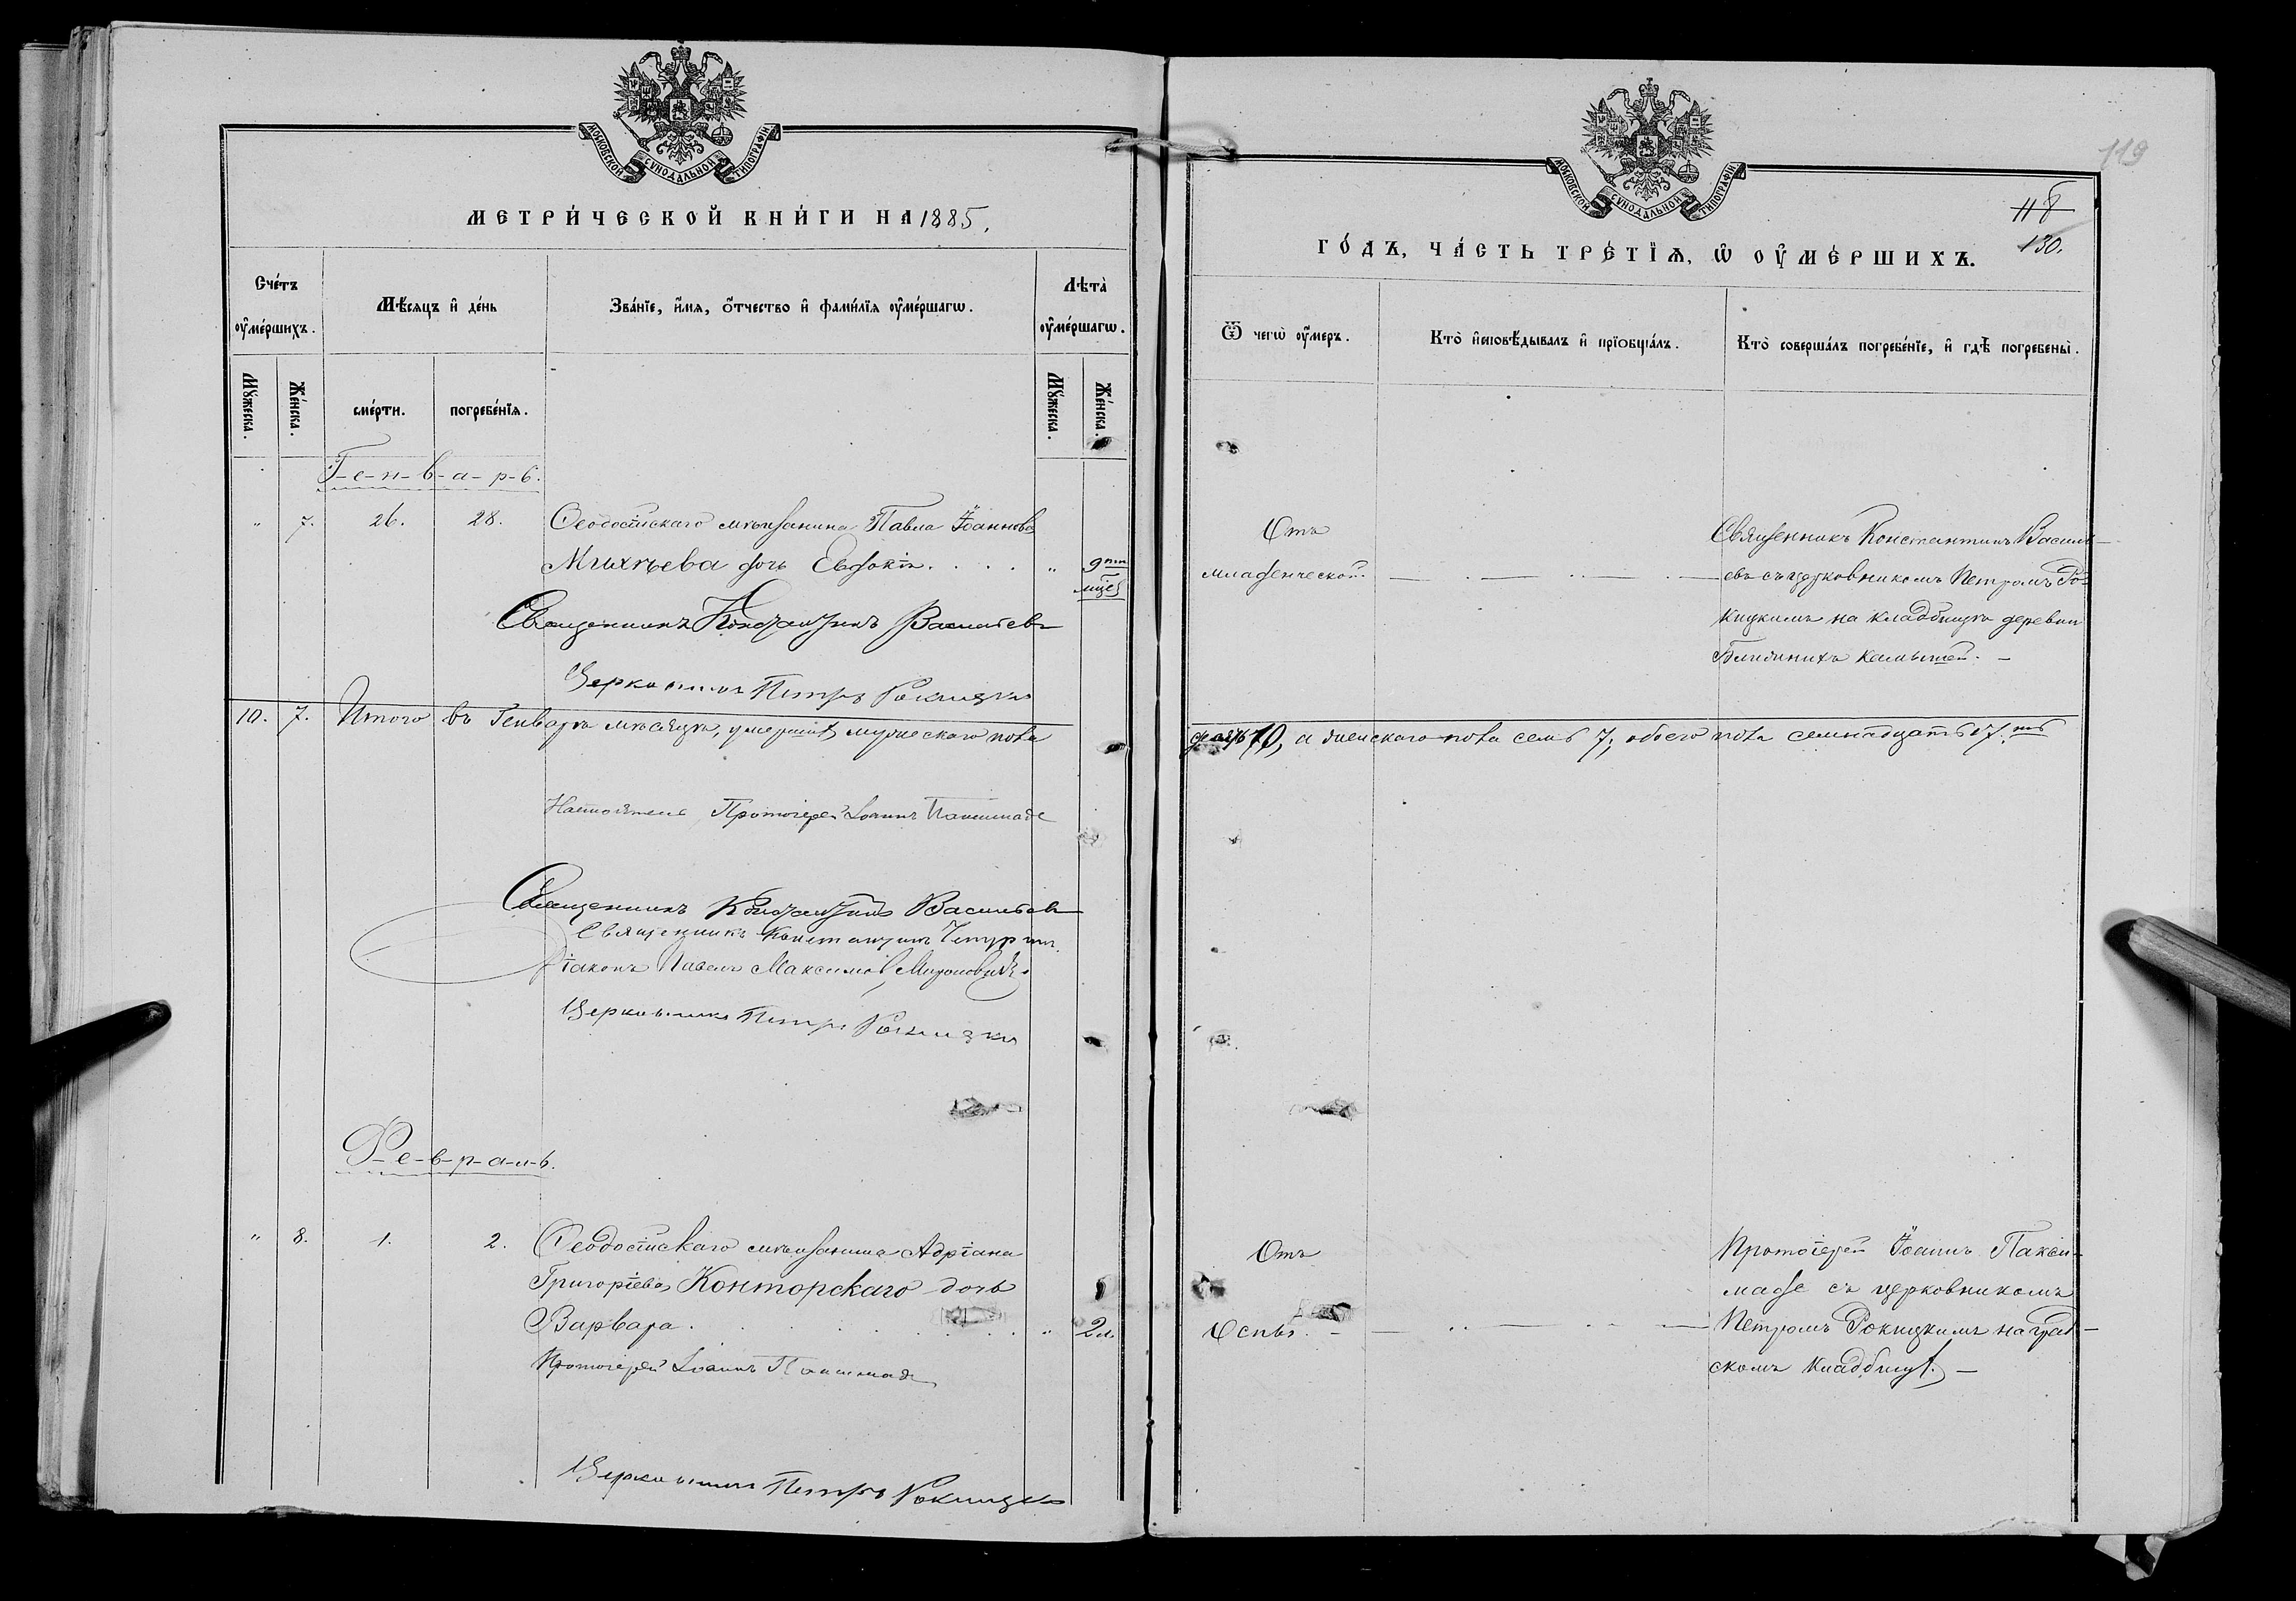 МОСКОВСКОЙ СѴНОДАЛЬНОЙ ТИПОГРАФІИ
МЕТРИ́ЧЕСКОЙ КНИ́ГИ НА 1885.
Сче́тъ ᲂу҆ме́ршихъ.
Мѣ́сяцъ и҆ де́нь
Зва́нїе, и҆́мя, ѻ҆́тчество и҆ фами́лїя ᲂу҆ме́ршагѡ.
Лѣта̀ ᲂу҆ме́ршагѡ.
Мꙋ́жеска.
Же́нска.
сме́рти.
погребе́нїѧ.
Мꙋ́жеска.
Же́нска.
Г-е-н-в-а-р-ь.
" 7. 26. 28. Ѳеодосійскаго мѣщанина Павла Іоаннова
Михѣева дочь Евдокія. . . . . " 9ти
мцев
Священникъ Константинъ Васильевъ
Церковникъ Петръ Рокицкій
10. 7. Итого въ Генварѣ мѣсяцѣ, умершихъ мужескаго пола
Настоятель Протоіерей Іоаннъ Паксимаде
Священникъ Константинъ Васильевъ
Священникъ Константинъ
Діаконъ Павелъ Максимовъ Мироновичъ.
Церковникъ Петръ Рокицкій
Ф-е-в-р-а-л-ь.
" 8. 1. 2. Ѳеодосійскаго мѣщанина Адріана
Григоріева Конторскаго дочь
Варвара . . . . . . . " 2 л.
Протоіерей Іоаннъ Паксимаде
Церковникъ Петръ Рокицкій
119
МОСКОВСКОЙ СѴНОДАЛЬНОЙ ТИПОГРАФІИ
118
130.
ГО́ДЪ, ЧА́СТЬ ТРЕ́ТЇѦ, Ѡ҆ ОУ҆МЕ́РШИХЪ.
Ѿ чегѡ̀ ᲂу҆́меръ.
Кто̀ и҆сповѣ́дывалъ и҆ прїѻбща́лъ.
Кто̀ соверша́лъ погребе́нїе, и҆ гдѣ̀ погребены̀.
Отъ
младенческой.
Священникъ Константинъ Василь-
евъ съ церковникомъ Петромъ Ро-
кицкимъ на кладбищѣ деревни
Ближнихъ Камышей. –
десять 10, а женскаго пола семь 7; обоего пола семнадцать 17.ть
Отъ
Оспы. –
Протоіерей Іоаннъ Пакси-
маде съ церковникомъ
Петромъ Рокицкимъ на град-
скомъ кладбищѣ. –